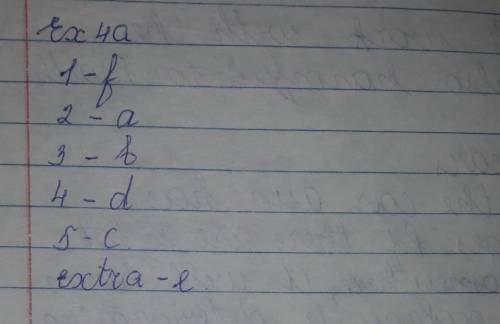 Ex 4a
1 - f
2 - a
3 - b
4 - d
5 - c
extra - e